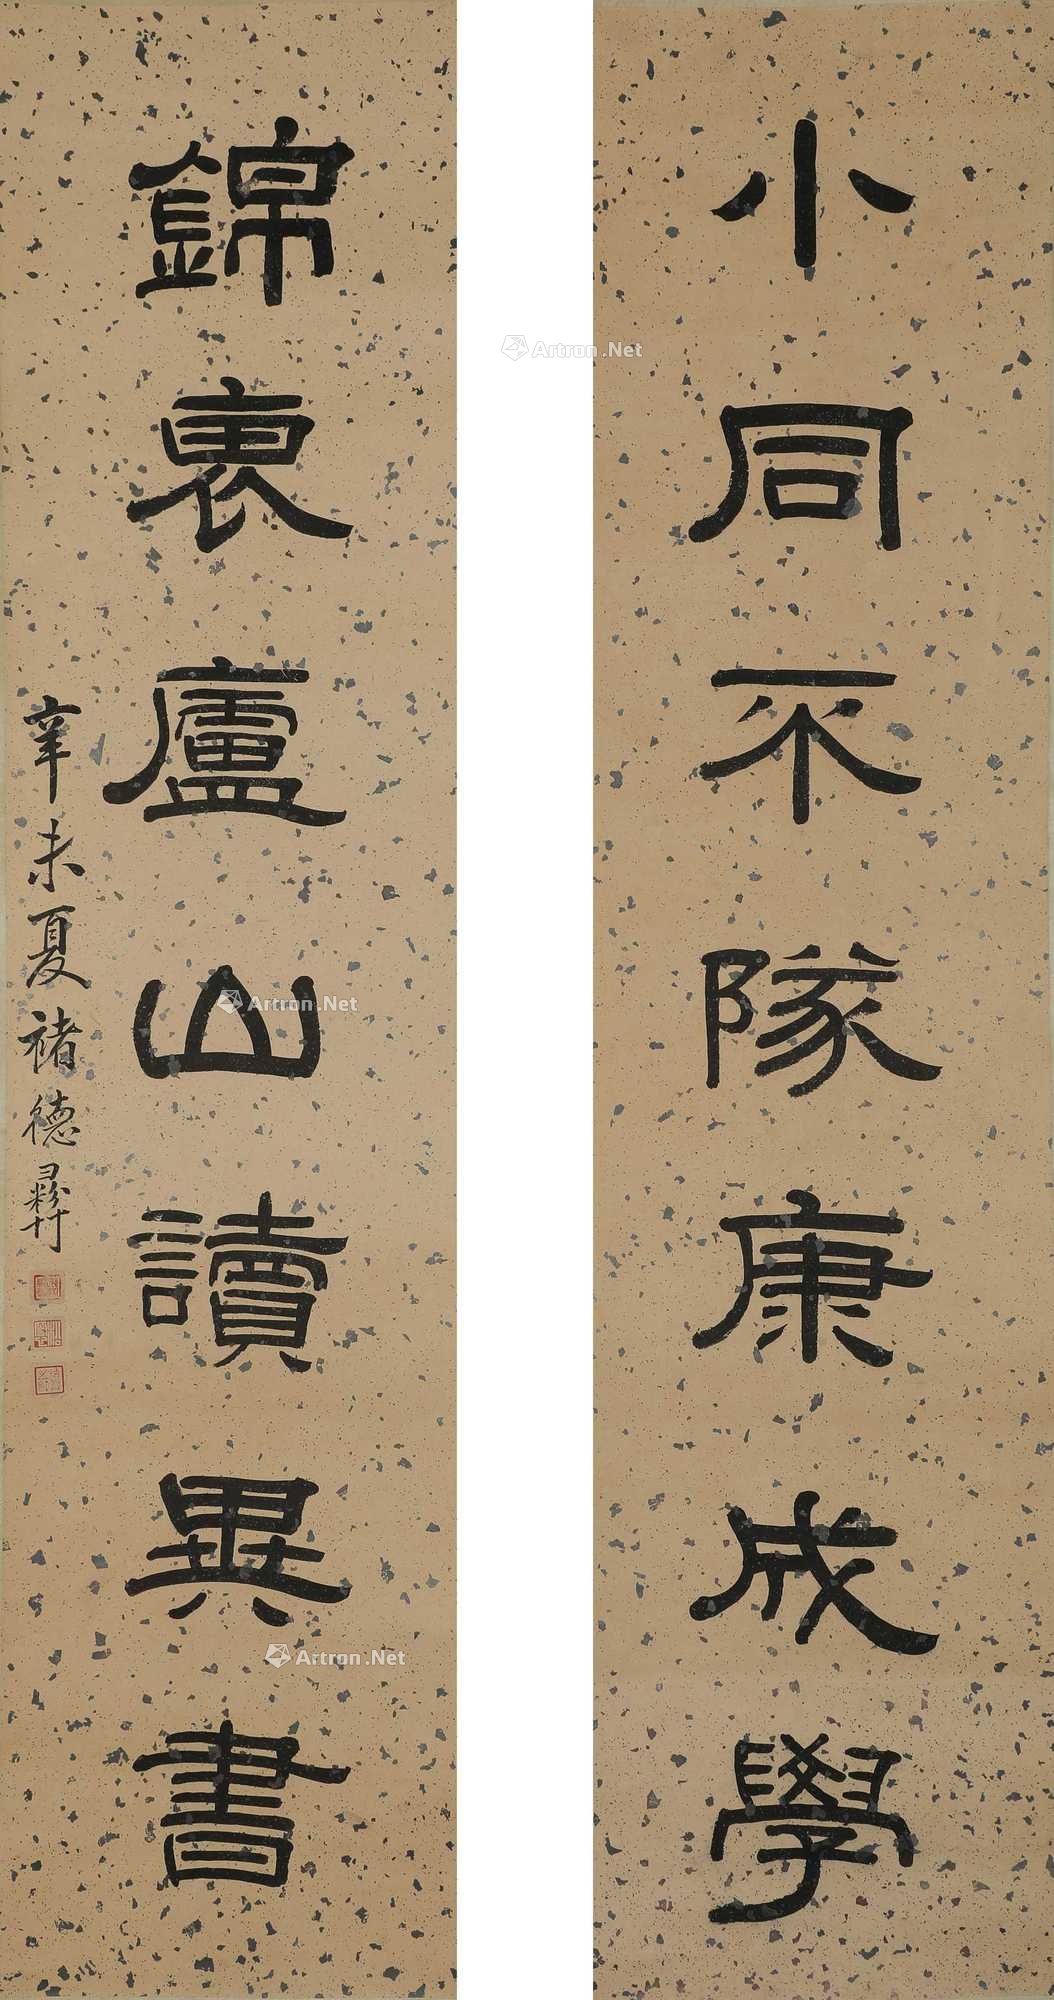 小同不隊康成學
錦裏廬山讀異書
辛未夏褚德彝
Artron.Net
Artron.Net
Artron.Net